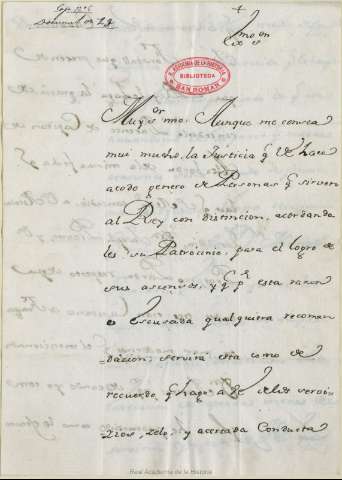 +
Exmo Sor
R. ACADEMIA DE LA HISTORIA
BIBLIOTECA
SAN ROMAN
Muy Sr mio: Aunque me consta
mui mucho, la Justicia q VE hace
a todo genero de Personas q sirven
al Rey con distincion, acordando
les su Patrocinio, para el logro de
sus ascensos, y q pr esta razon
es Escusada qualquiera recomen
dacion; servirá esta como de
recuerdo, q hago a VE de los servi
cios, zelo, y acertada Conducta
Real Academia de la Historia